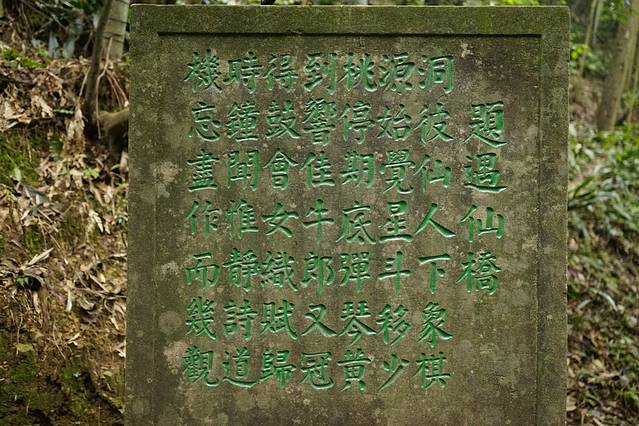 題遇仙橋
洞彼仙人下象棋
源始覺星斗移少
桃停期底彈琴黃
到響佳牛郎又冠
得鼓會女織賦歸
時鐘聞惟靜詩道
機忘盡作而幾觀